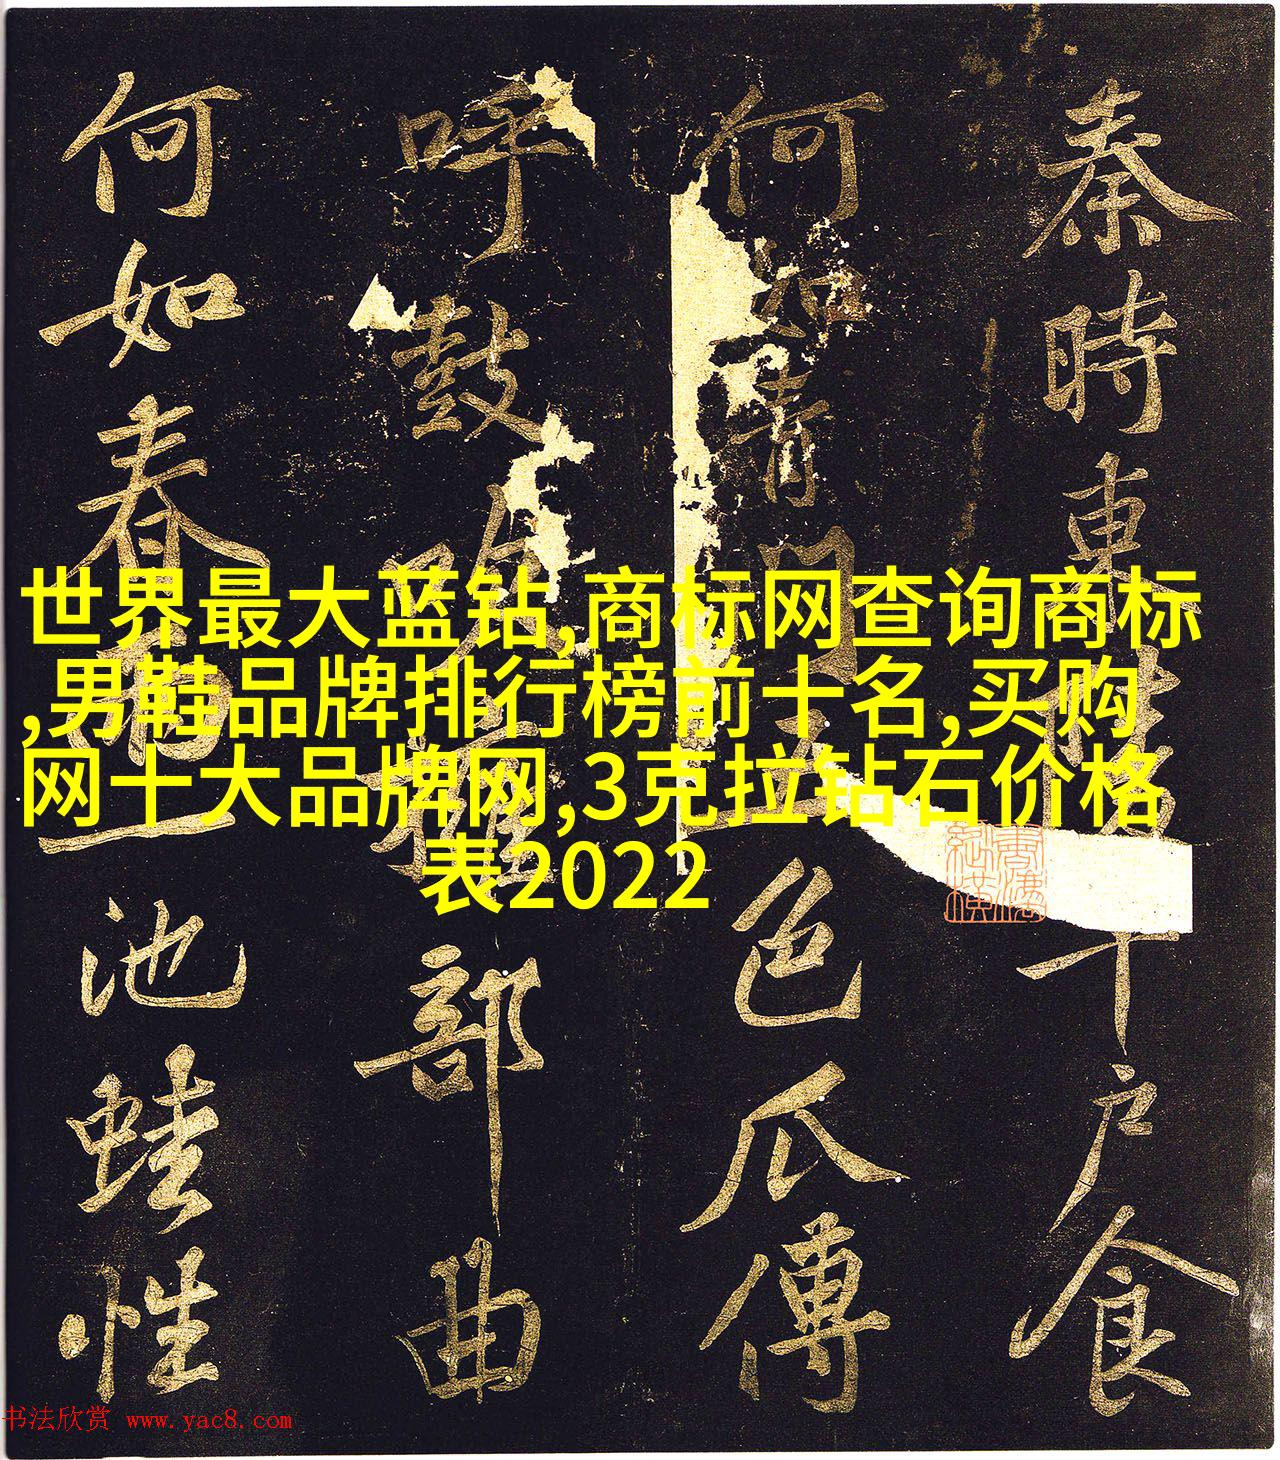 秦時東千戶食
何如青門五色瓜傳
呼鼓吹部曲
何如春一池蛙性
世界最大蓝钻,商标网查询商标
,男鞋品牌排行榜前十名,买购
网十大品牌网,3克拉钻石价格
表2022
书法欣赏 www.yac8.com